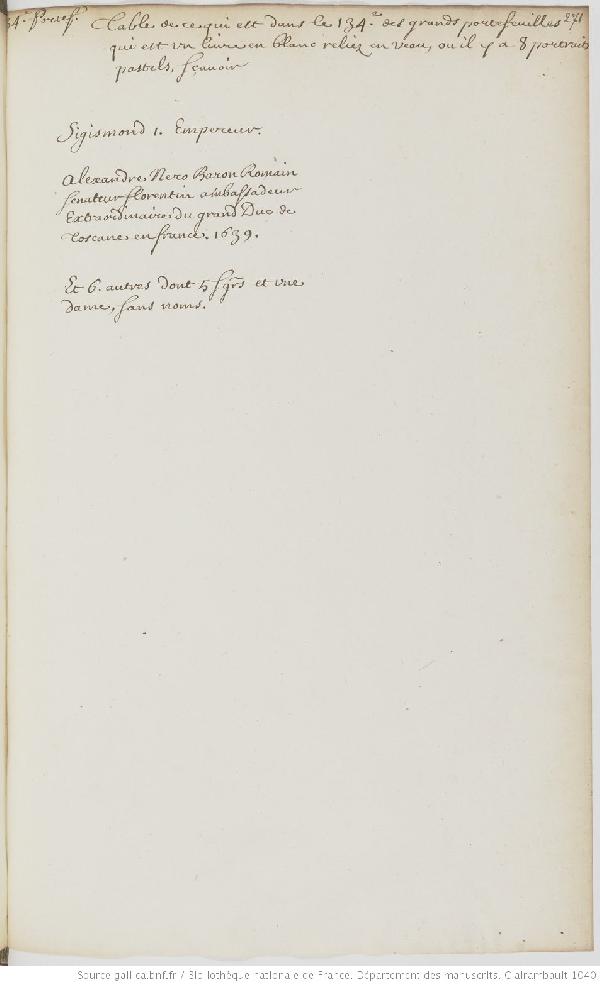 34. Portef.
Table de ce qui est dans le 134.e des grands portefeuilles 271
qui est vn liure en blanc reliez en veau, ou il y a 8 portraits
pastels, sçauoir
Sigismond 1. Empereur.
Alexandre Nero Baron Romain
senateur florentin ambassadeur
Extraordinaire du grand Duc de
Toscane en france. 1639.
Et 6. autres dont 5 sgrs et vne
dame, sans noms.
Source gallica.bnf.fr / Bibliothèque nationale de France. Département des manuscrits. Clairambault 1040